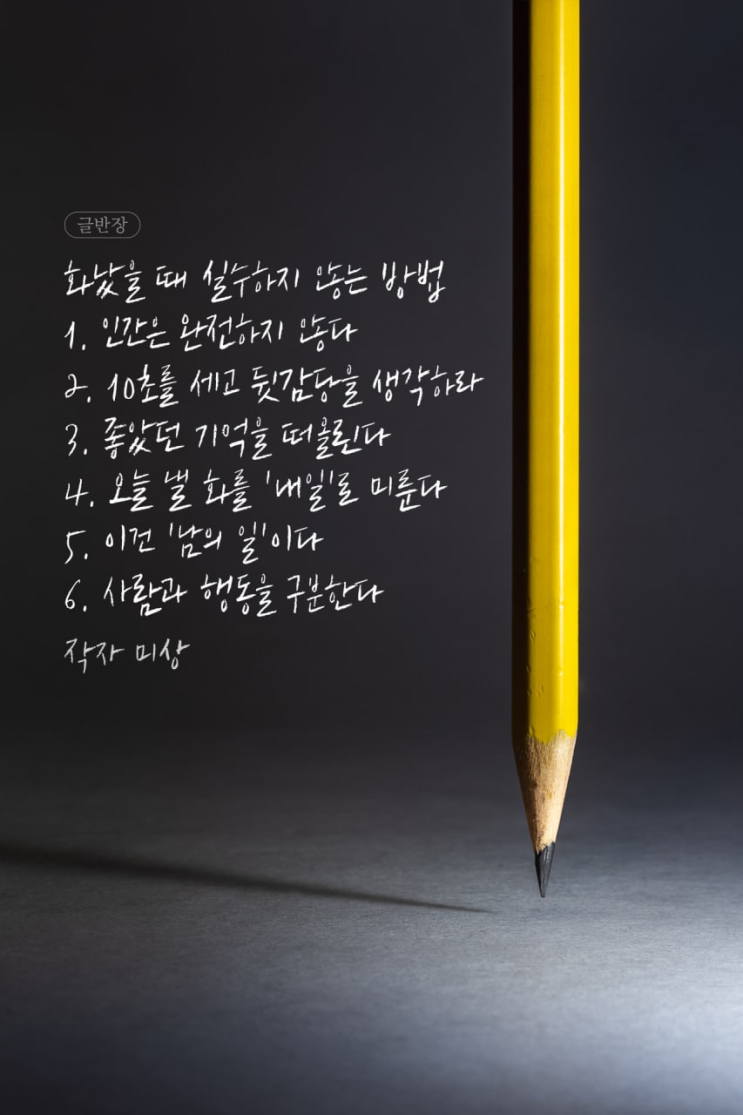 글반장
화났을 때 실수하지 않는 방법
1. 인간은 완전하지 않다
2. 10초를 세고 뒷감당을 생각하라
3. 좋았던 기억을 떠올린다
4. 오늘 낼 화를 '내일'로 미룬다
5. 이건 '남의 일'이다
6. 사람과 행동을 구분한다
작자 미상